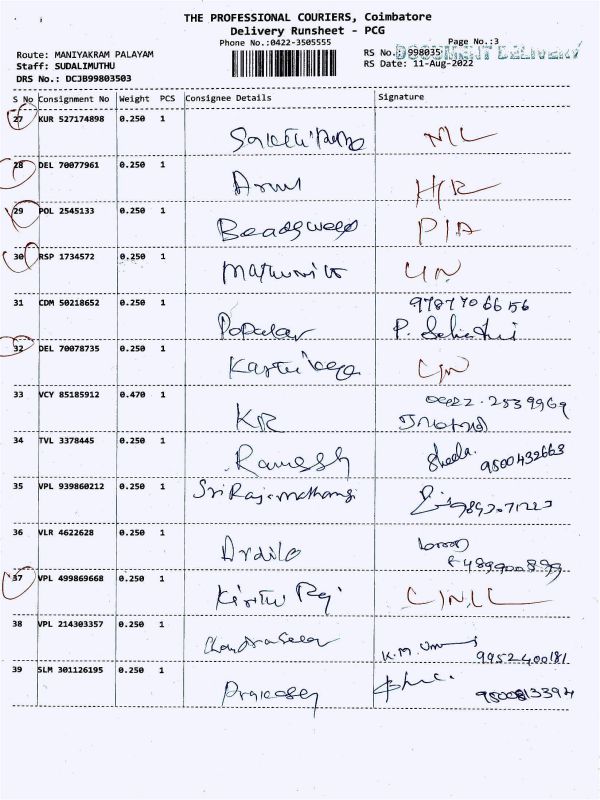 THE PROFESSIONAL COURIERS, Coimbatore
Delivery Runsheet - PCG
Phone No.:0422-3505555 Page No.:3
Route: MANIYAKRAM PALAYAM RS No. 998035 DOCUMENT DELIVERY
Staff: SUDALIMUTHU RS Date: 11-Aug-2022
DRS No.: DCJB99803503
S No Consignment No Weight PCS Consignee Details Signature
27 KUR 527174898 0.250 1
NLC
28 DEL 70077961 0.250 1
Arul H/R
29 POL 2545133 0.250 1
P/A
30 RSP 1734572 0.250 1
31 CDM 50218652 0.250 1 9787706656
Popular P.
32 DEL 70078735 0.250 1
33 VCY 85185912 0.470 1 0422-2539969
KR
34 TVL 3378445 0.250 1
Ramesh Sheela. 9500432663
35 VPL 939860212 0.250 1 Sri Raja mathangi
36 VLR 4622628 0.250 1
37 VPL 499869668 0.250 1
38 VPL 214303357 0.250 1
K.M. 9952400181
39 SLM 301126195 0.250 1
9500813394